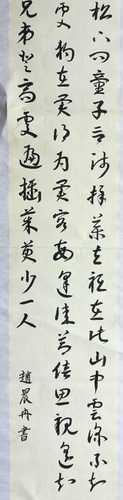 松下问童子言师採药去祇在此山中雲深不知
处独在异乡为异客每逢佳节倍思亲遥知
兄弟登高处遍插茱萸少一人
趙晨冉書